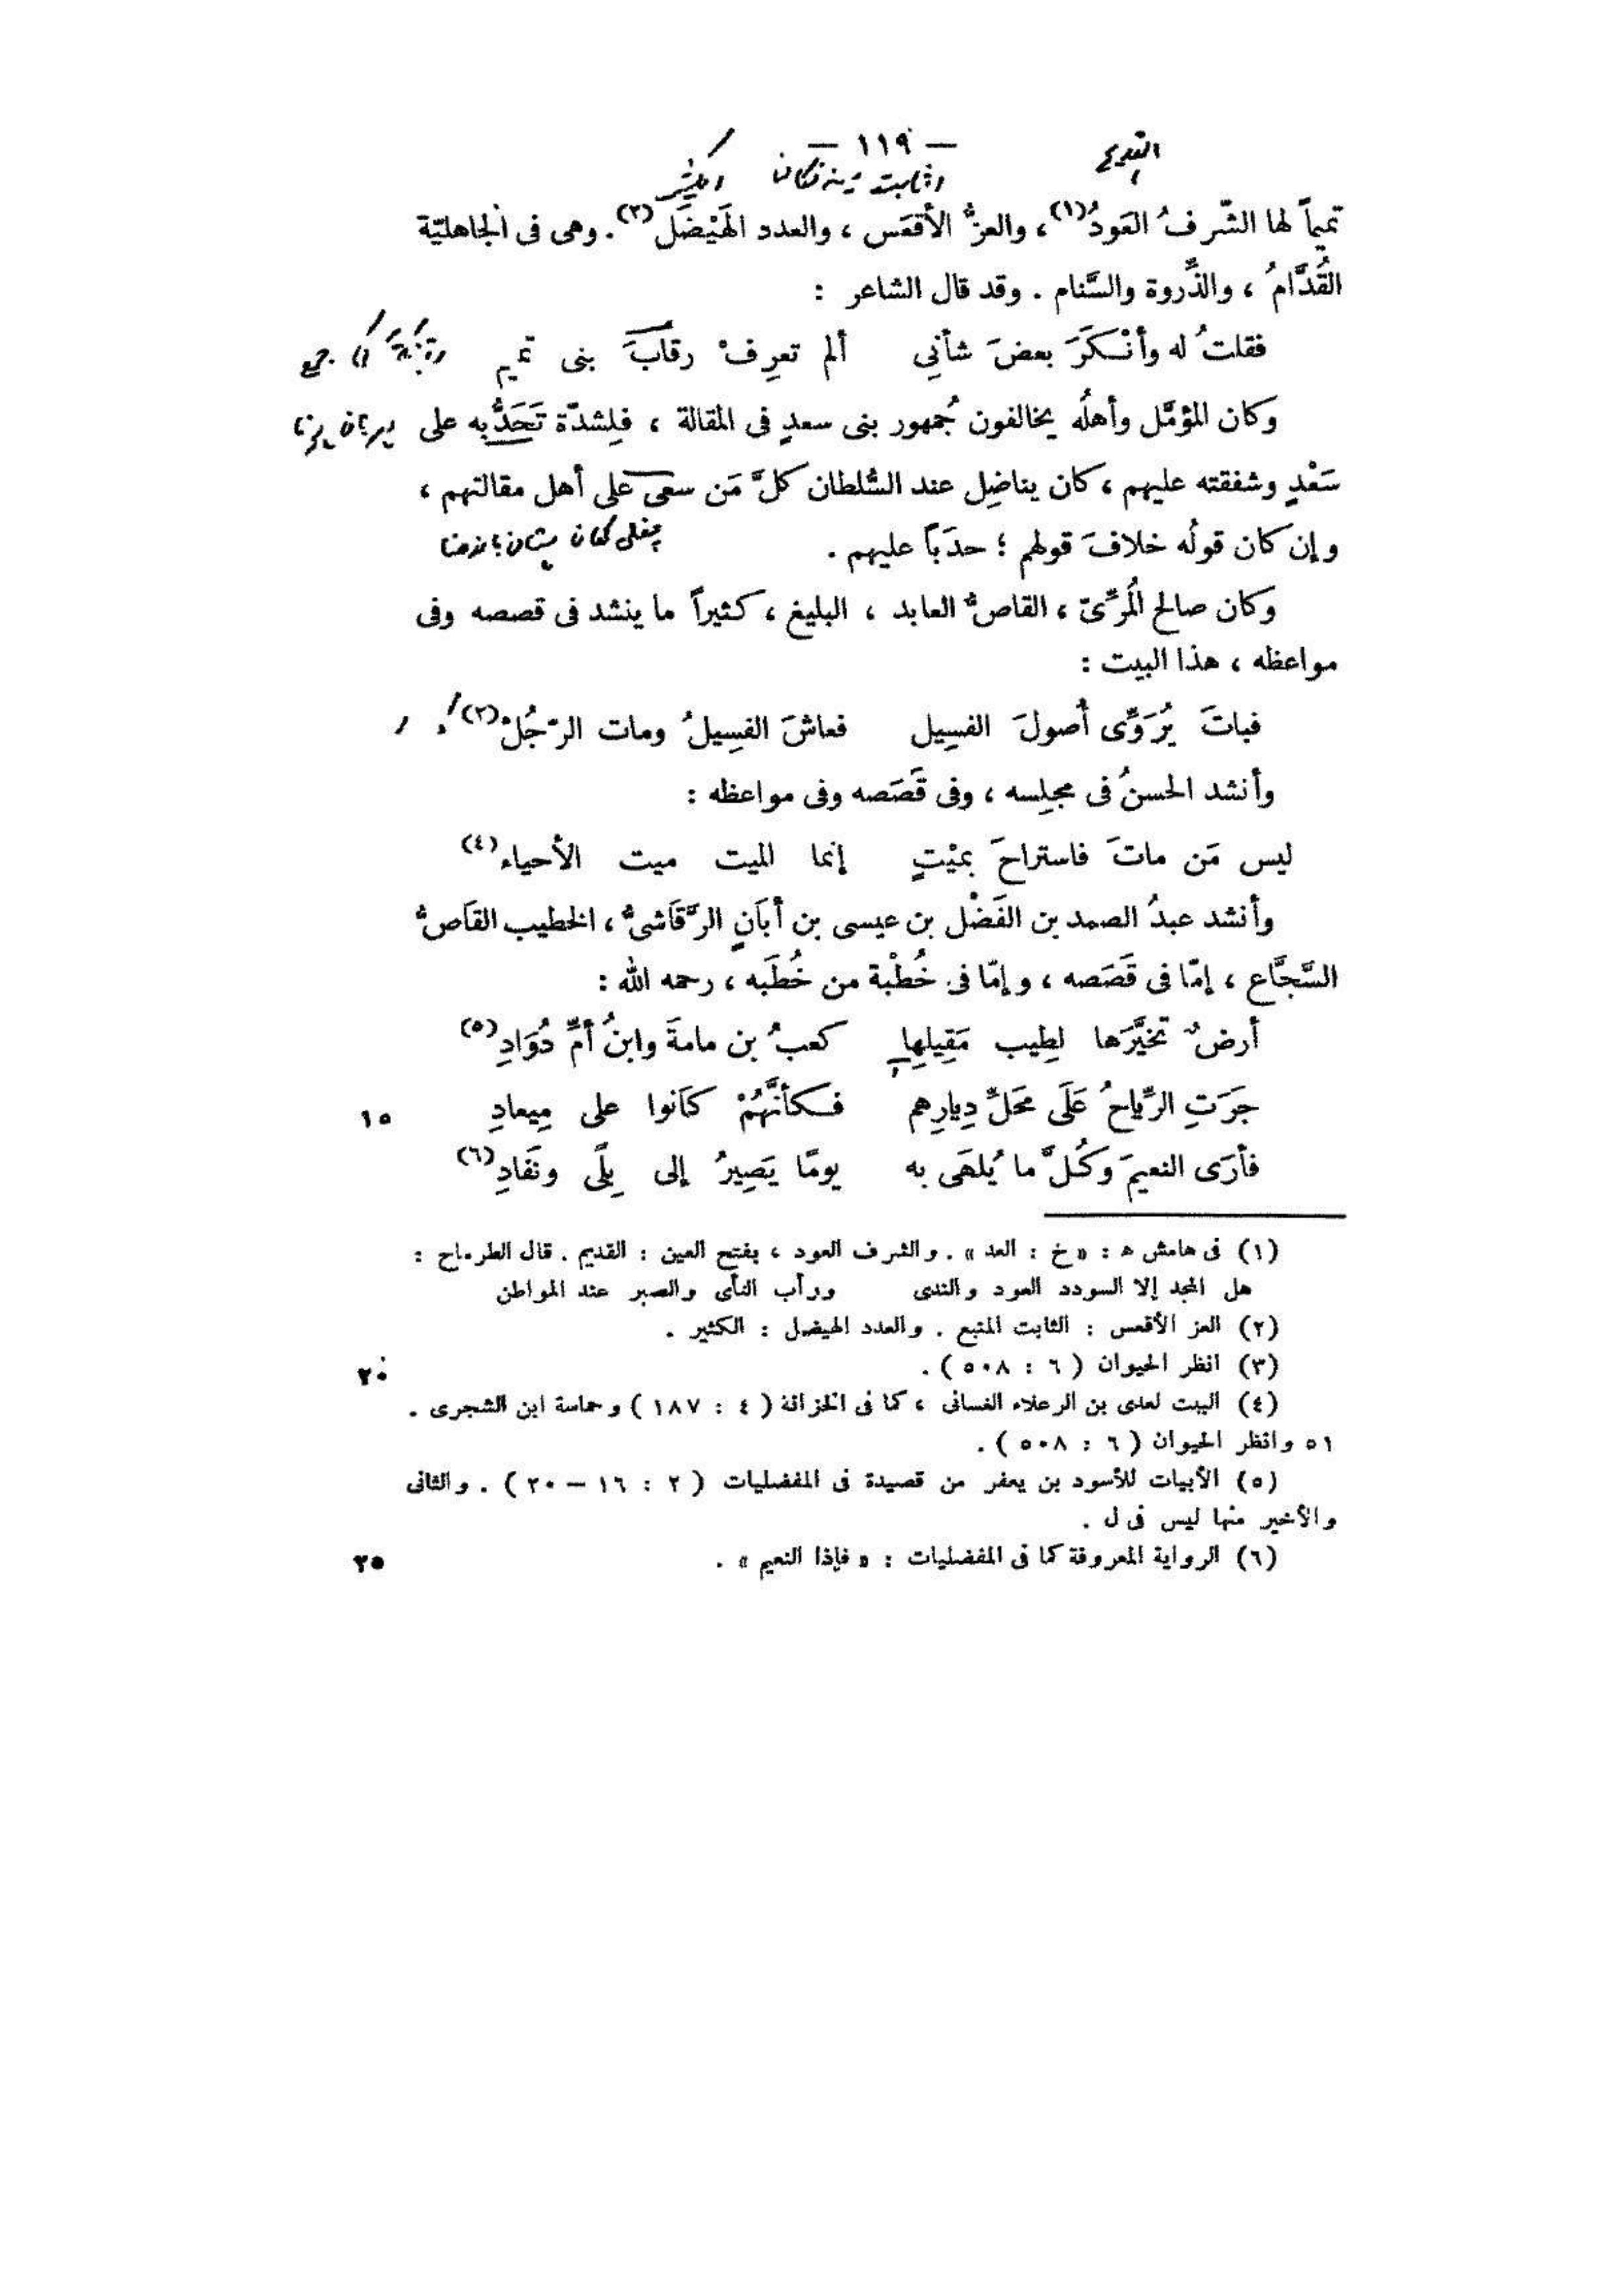 — ١١٩ —
تميماً لها الشّرفُ العَودُ(١)، والعزُّ الأقعَس، والعدد الهَيْضَل(٢). وهى فى الجاهليّة
القُدَّامُ، والذِّروة والسَّنام. وقد قال الشاعر :
فقلتُ له وأنْكَرَ بعضَ شأنِي ألم تعرِفْ رقابَ بنى تميم
وكان المؤمَّل وأهلُه يخالفون جُمهور بنى سعدٍ فى المقالة، فلِشدّة تَحَدُّبه على
سَعْدٍ وشفقته عليهم، كان يناضِل عند السُّلطان كلَّ مَن سعى على أهل مقالتهم،
وإن كان قولُه خلافَ قولهم؛ حدَباً عليهم.
وكان صالح المُرِّىّ، القاصُّ العابد، البليغ، كثيراً ما ينشد فى قصصه وفى
مواعظه، هذا البيت :
فباتَ يُرَوِّى أُصولَ الفسِيل فعاشَ الفسِيلُ ومات الرّجُلْ(٣)
وأنشد الحسنُ فى مجلِسه، وفى قَصَصه وفى مواعظه :
ليس مَن ماتَ فاستراحَ بمَيْتٍ إنما الميت ميت الأحياء(٤)
وأنشد عبدُ الصمد بن الفَضْل بن عيسى بن أبَانٍ الرَّقَاشىُّ، الخطيب القَاصُّ
السَّجَّاع، إمّا فى قَصَصه، وإمّا فى خُطْبة من خُطَبه، رحمه الله :
أرضٌ تخيَّرَها لطِيب مَقِيلِها كعبُ بن مامةَ وابنُ أمِّ دُوَادِ(٥)
جَرَتِ الرِّياحُ عَلَى مَحَلِّ دِيارِهم فكأنَّهُمْ كَانوا على مِيعادِ ١٥
فأرَى النعيمَ وكُلَّ ما يُلهَى به يومًا يَصِيرُ إلى بِلًى ونَفَادِ(٦)
(١) فى هامش ه : « خ : العد ». والشرف العود، بفتح العين : القديم. قال الطرماح :
هل المجد إلا السودد العود والندى ورأب الثأى والصبر عند المواطن
(٢) العز الأقعس : الثابت المنيع. والعدد الهيضل : الكثير.
(٣) انظر الحيوان ( ٦ : ٥٠٨ ). ٢٠
(٤) البيت لعدى بن الرعلاء الغسانى، كما فى الخزانة ( ٤ : ١٨٧ ) وحماسة ابن الشجرى.
٥١ وانظر الحيوان ( ٦ : ٥٠٨ ).
(٥) الأبيات للأسود بن يعفر من قصيدة فى المفضليات ( ٢ : ١٦ – ٢٠ ). والثانى
والأخير منها ليس فى ل.
(٦) الرواية المعروفة كما فى المفضليات : « فإذا النعيم ». ٢٥